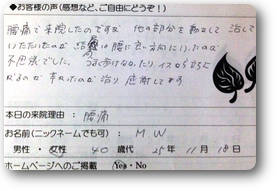 ◆お客様の声(感想など、ご自由にどうぞ！)
腰痛で来院したのですが 他の部分を動かして 治して
いただいたのが 結果 腰に良い方向にいったのが
不思議でした。うまく歩けなかったり イスから立てなく
なるのが すんだのが治り 感謝してます
本日の来院理由： 腰痛
お名前(ニックネームでも可)： M W
男性・女性 40 歳代 25年 11月 18日
ホームページへのご掲載 Yes・No